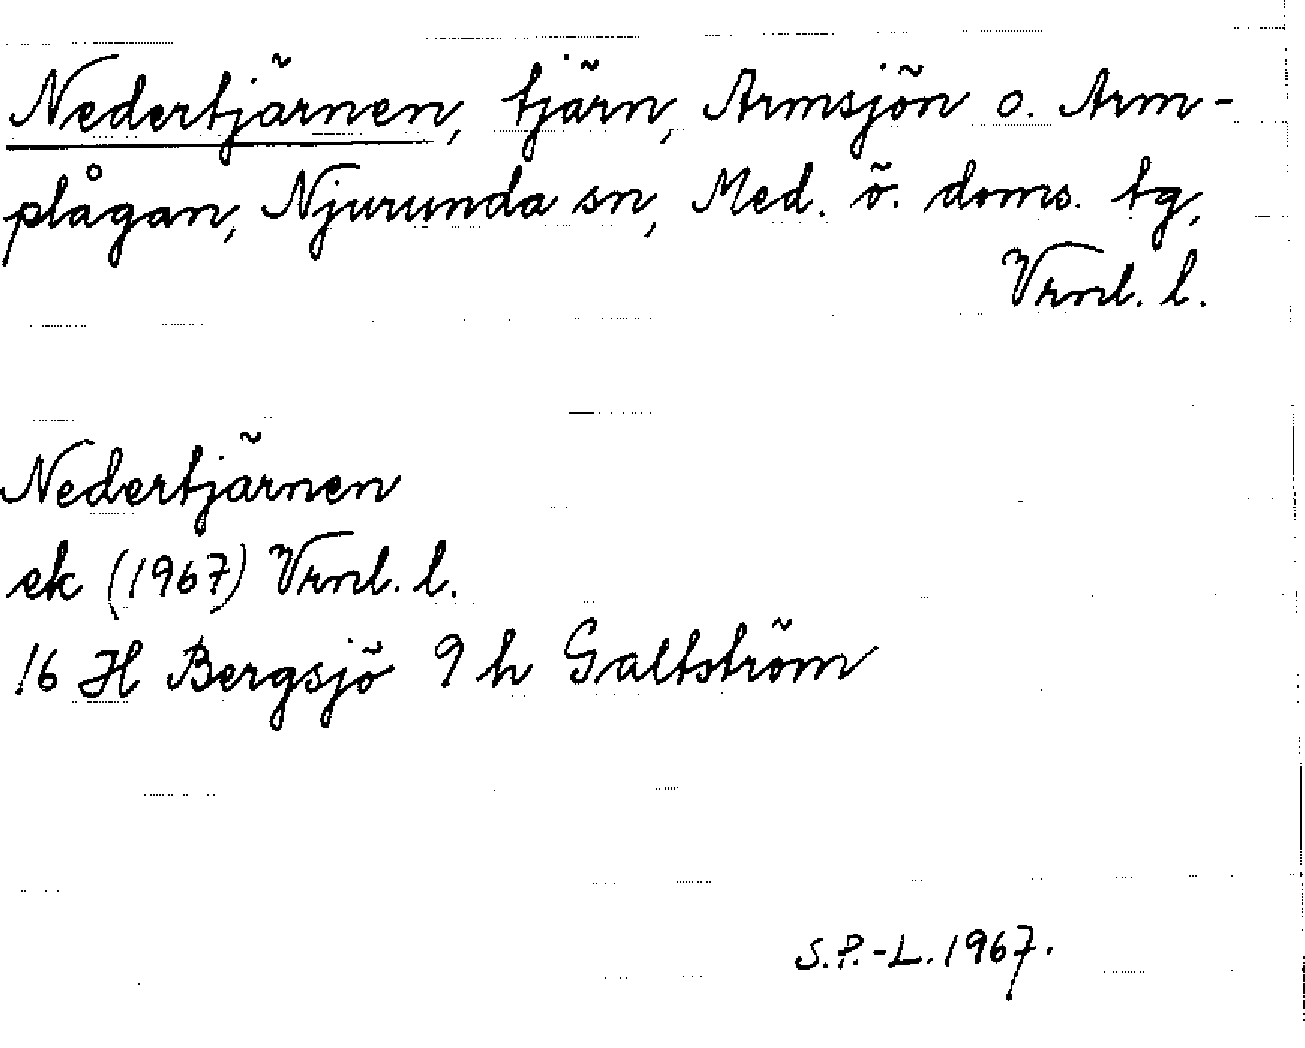 Nedertjärnen, tjärn, Armsjön o. Arm-
plågan, Njurunda sn, Med. ö. doms. tg,
Vrnl. l.
Nedertjärnen
ek (1967) Vrnl. l.
16 H Bergsjö 9 h Galtström
S.P.-L. 1967.